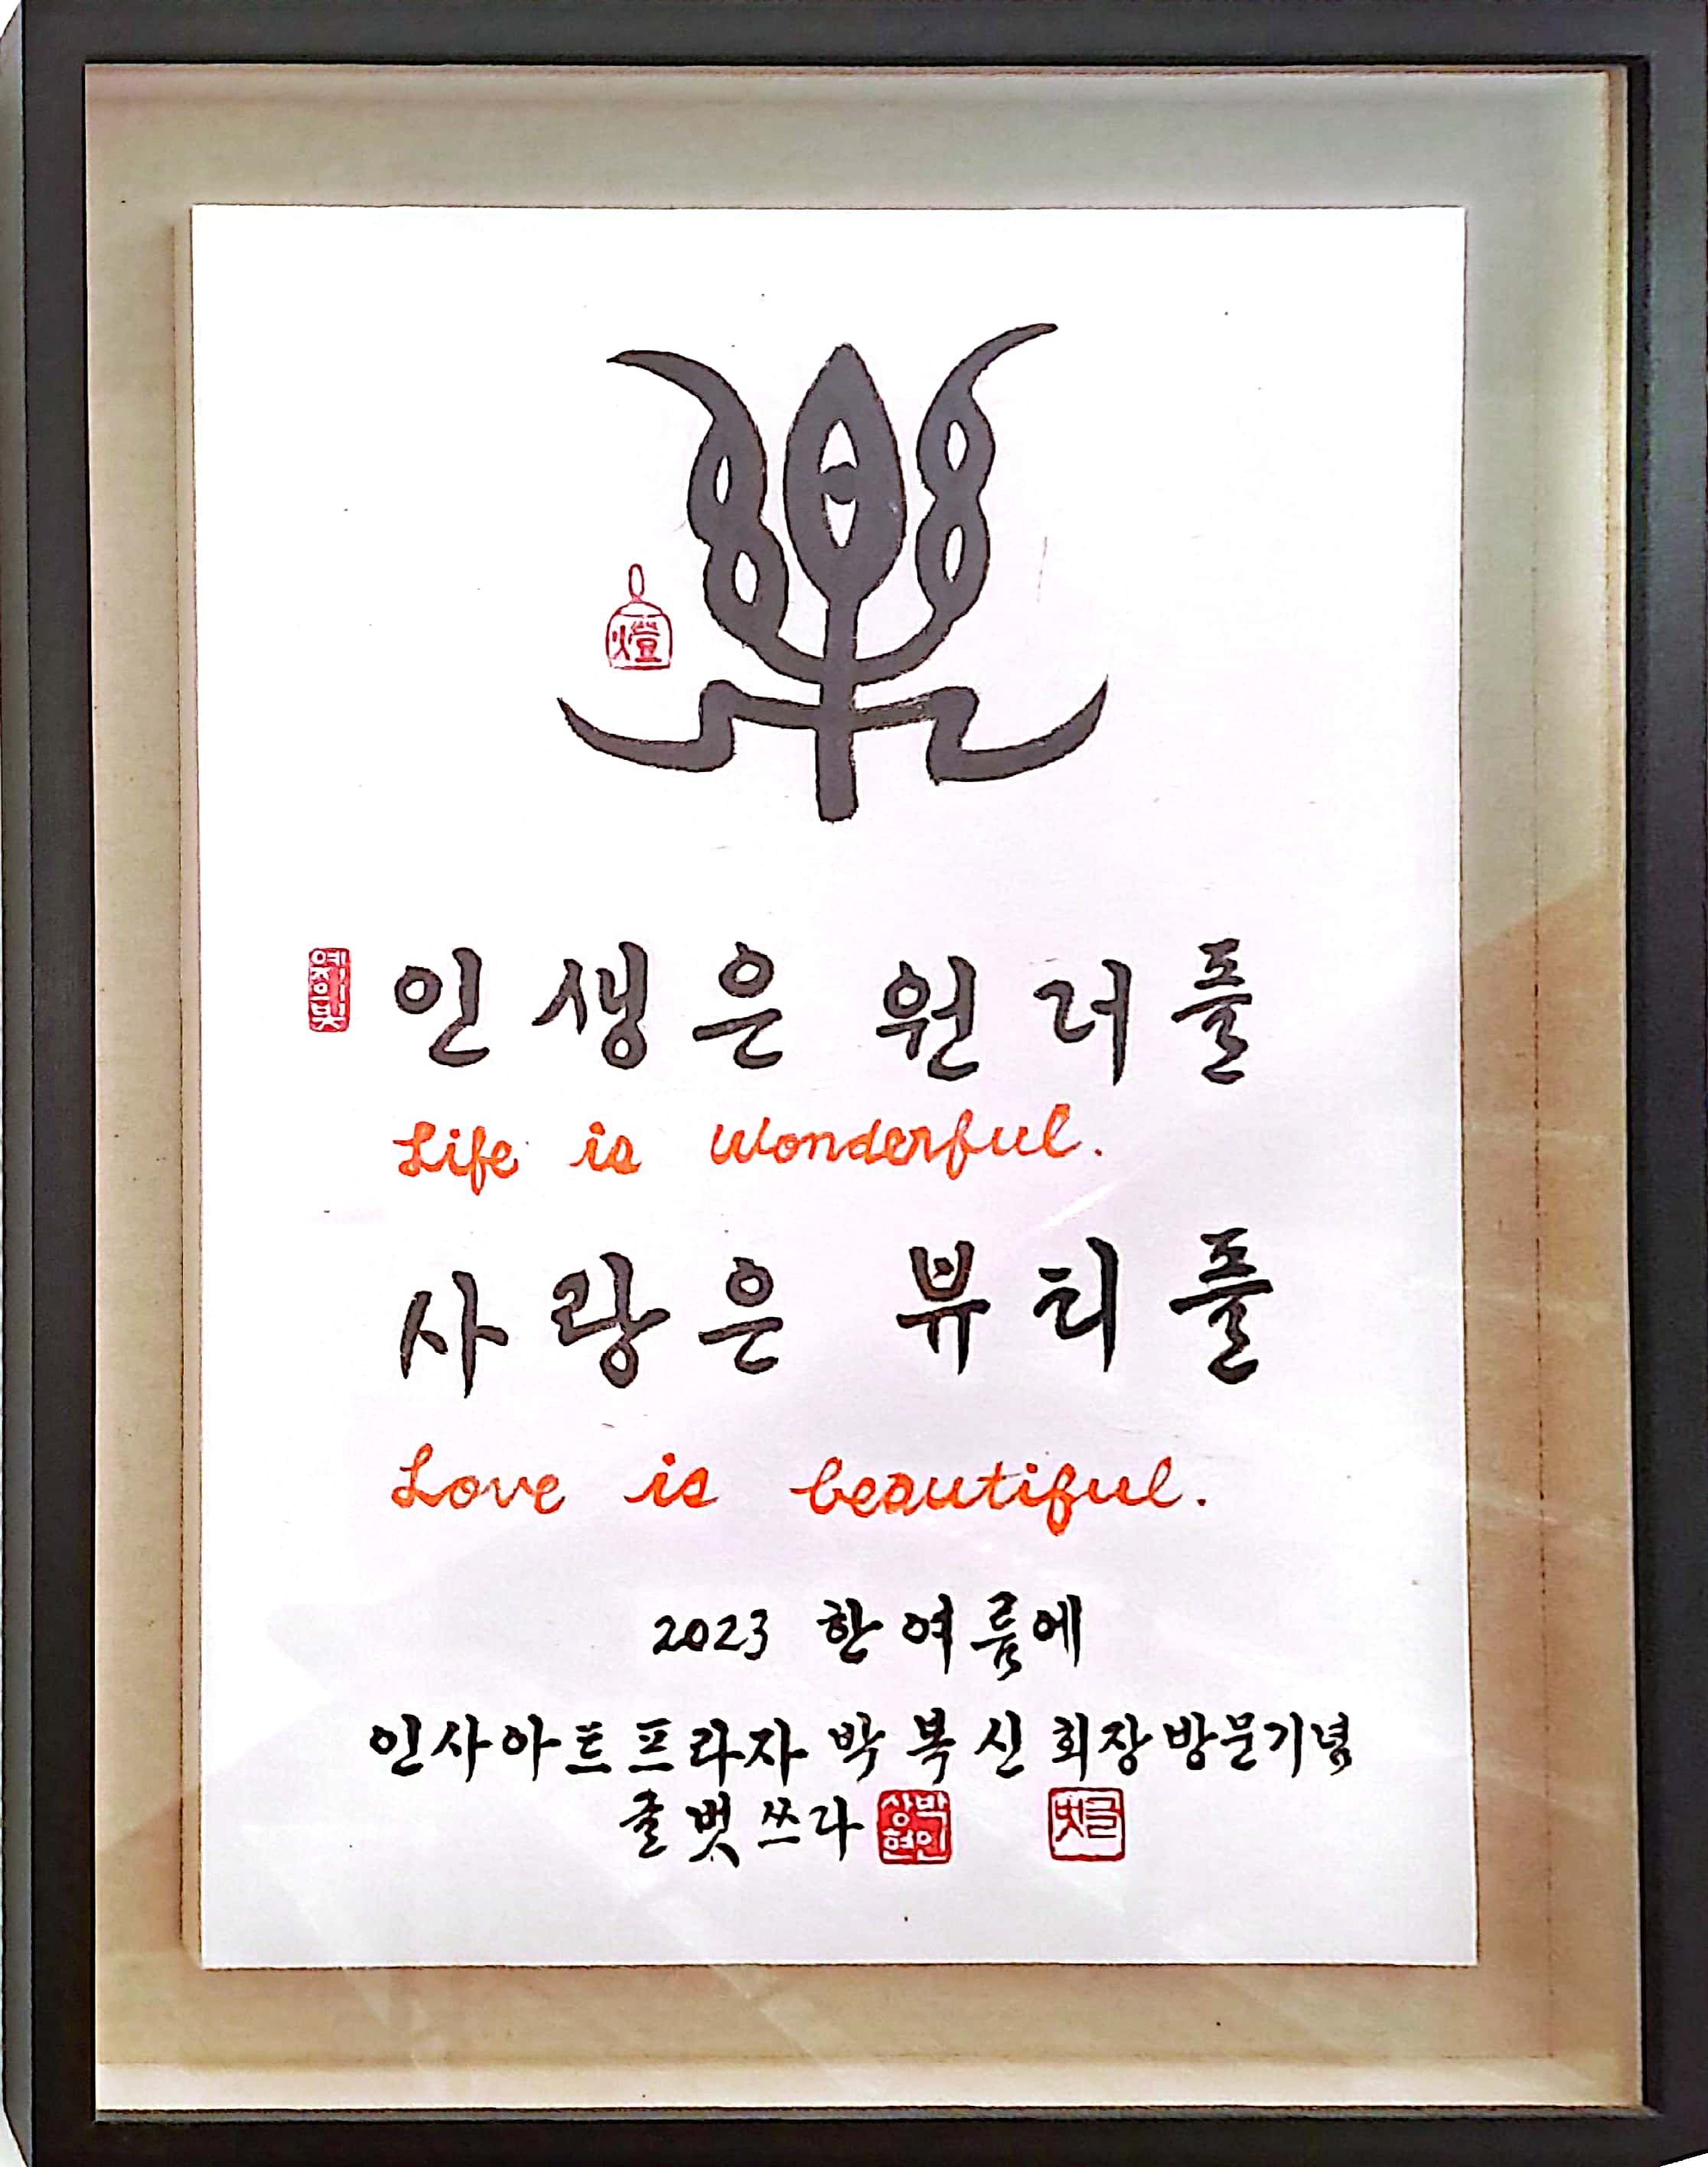 樂
燈
인생은 원더풀
Life is wonderful.
사랑은 뷰티풀
Love is beautiful.
2023 한여름에
인사아트프라자 박복신 회장 방문기념
글벗 쓰다
박인상현
글벗